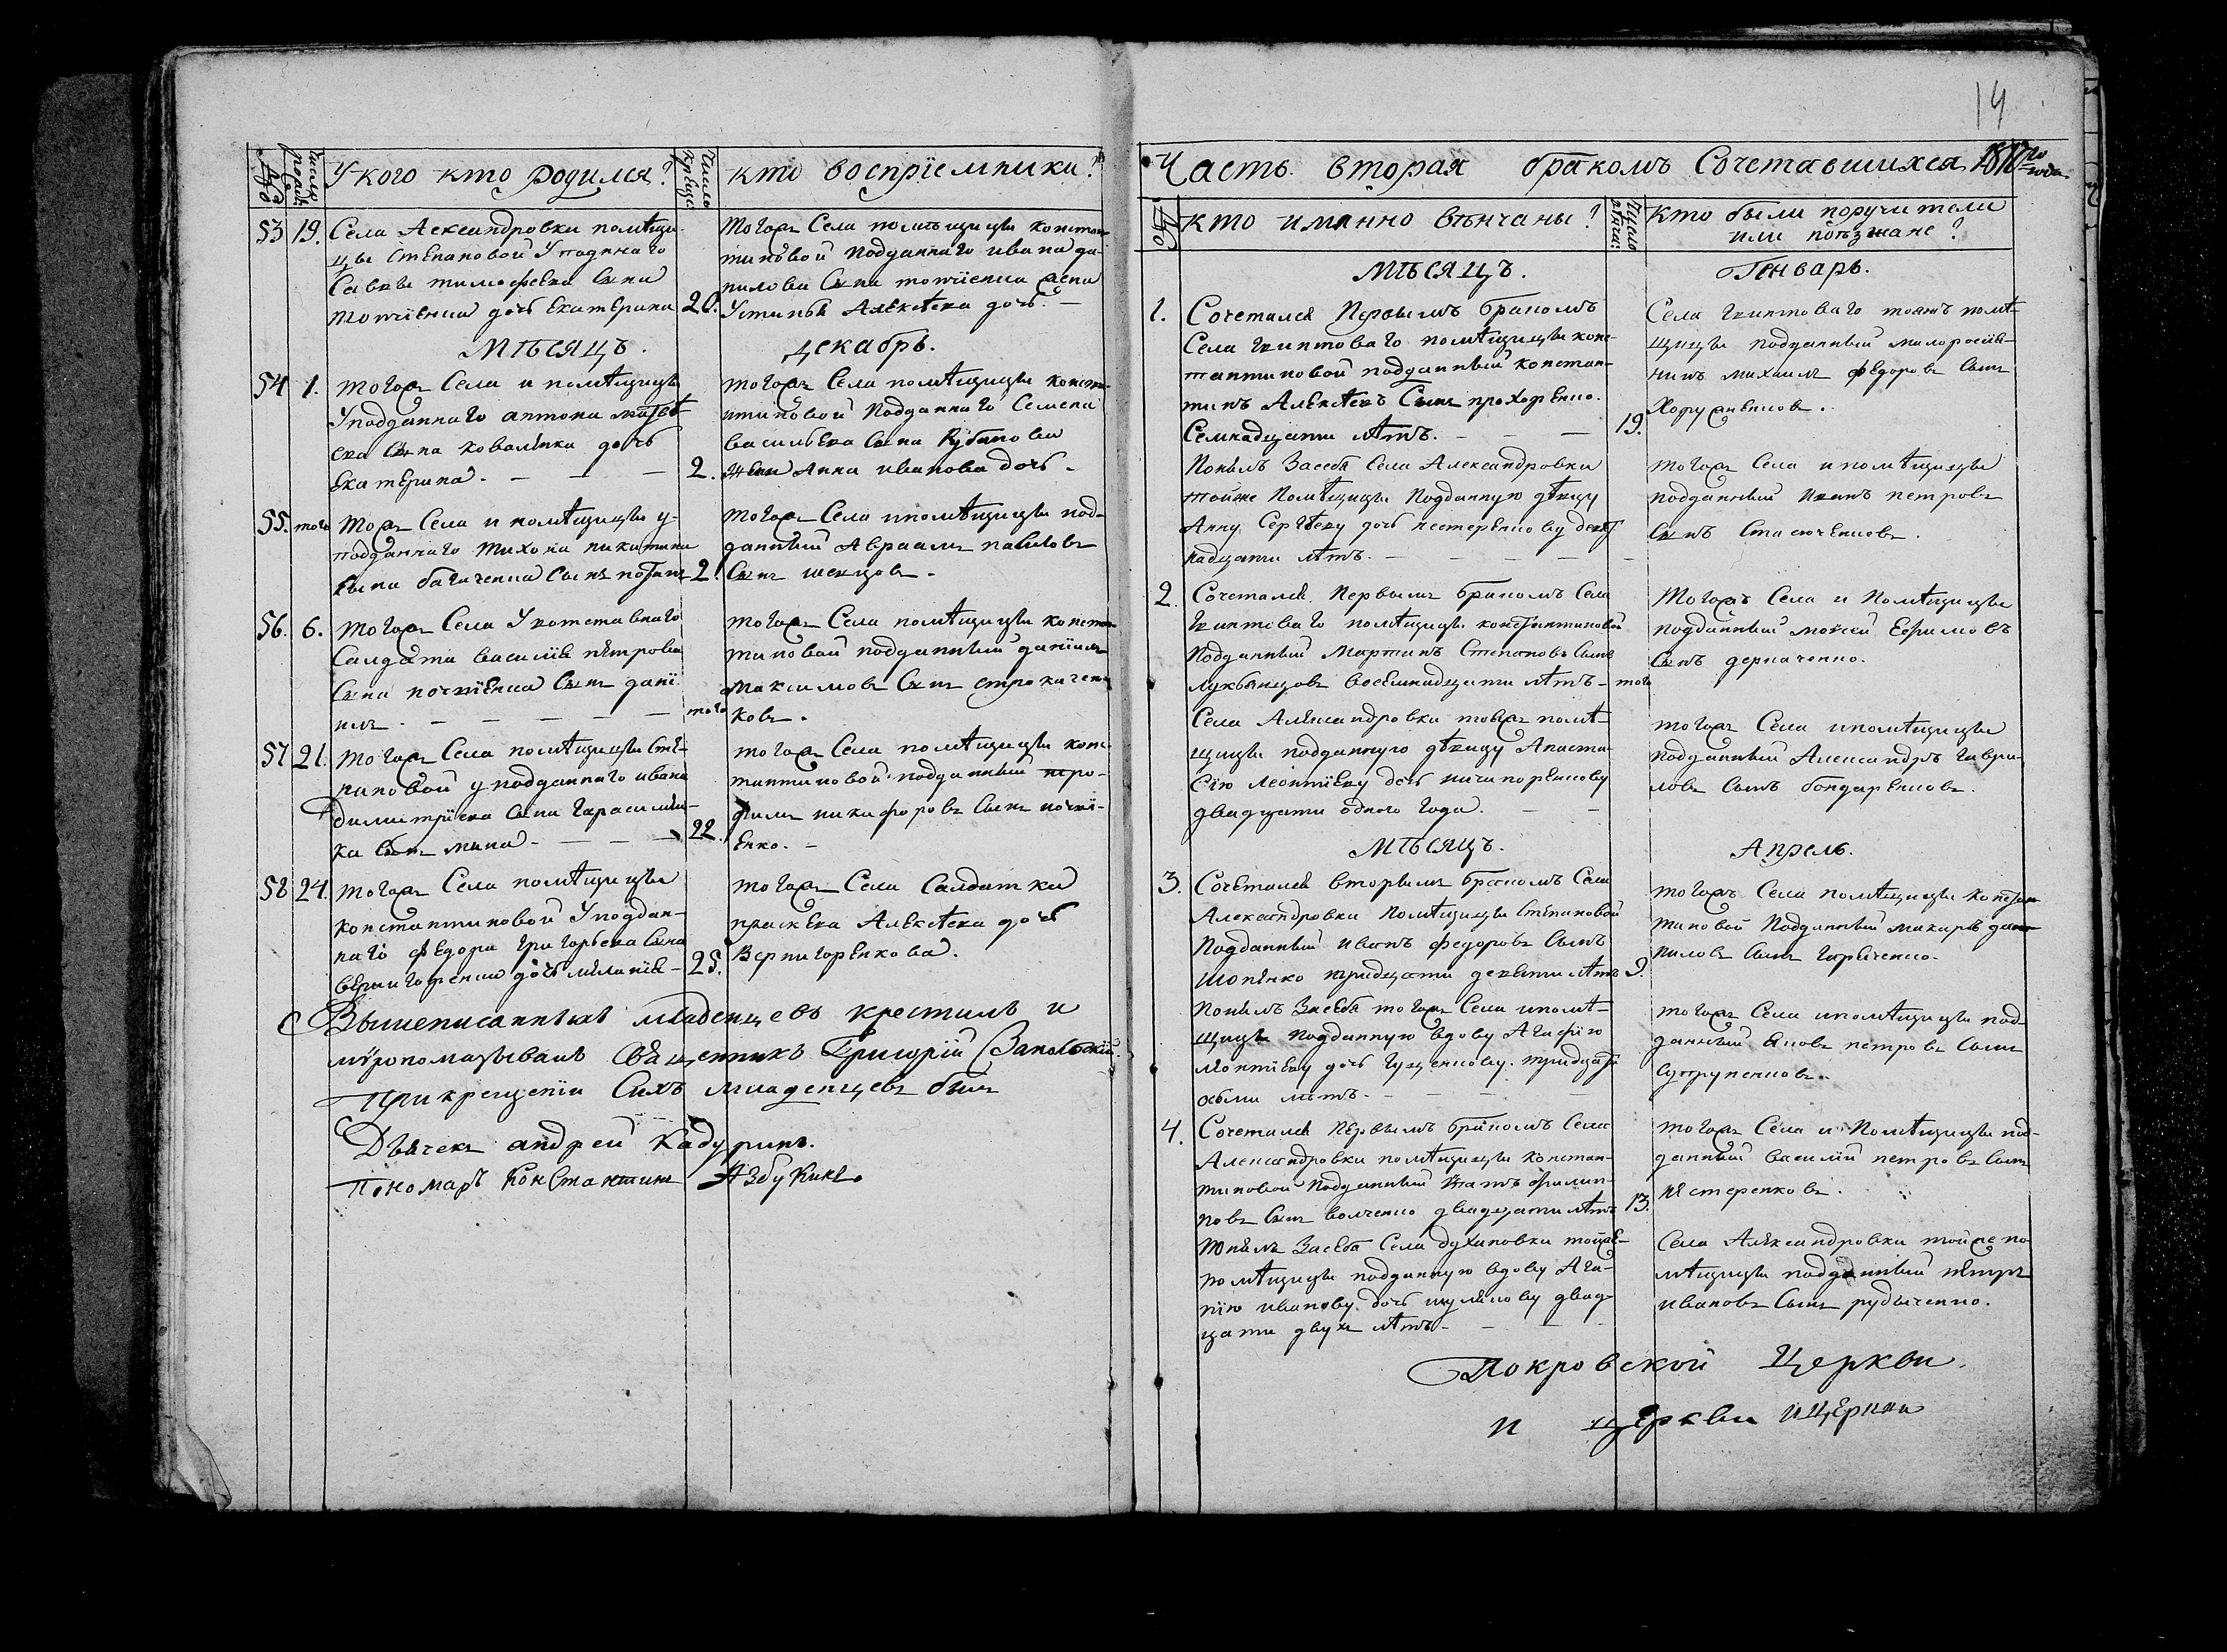 14
№
число рожд:
У кого кто родился?
Число крещ:
кто воспріемники?
53 19. Села Александровки помѣщи-
цы Степановой У подд[а]наго
Савы тимофеева сына
дочь Екатерина 20.
тогожъ Села помѣщицы констан-
тиновой подданнаго ивана да-
нилова сына жена
Устинья Алексѣева дочь. —
Мѣсяцъ. декабрь.
54 1. тогожъ Села и помѣщицы
У подданнаго антона матвѣ-
ева сына коваленка дочь
Екатерина. — — — 2.
тогожъ Села помѣщицы конста-
нтиновой подданнаго Семена
васильева сына Рубанова
жена Анна иванова дочь.
55. того тожъ Села и помѣщицы у
подданнаго тихона никитина
сына багаченка сынъ потапъ 2.
тогожъ Села и помѣщицы под-
данный Авраамъ павловъ
сынъ шевцовъ.
56. 6. тогожъ Села У
Салдата василія петрова
сына сынъ дані-
илъ. — — — — — того
тогожъ Села помѣщицы констан-
тиновой подданный даніилъ
Максимовъ сынъ
ковъ.
57 21. тогожъ Села помѣщицы Сте-
пановой у подданнаго ивана
димитріева сына Гарасимен-
ка сынъ мина. — — — 22.
тогожъ Села помѣщицы конс-
тантиновой подданный тро-
фимъ никифоровъ сынъ
енко. —
58 24. тогожъ Села помѣщицы
константиновой У поддан-
наго Федора григорьева сына
вернигоренка дочь меланія — 25.
тогожъ Села Салдатка
праскева Алексѣева дочь
Вернигоренкова.
Вышеписанныхъ младенцевъ крестилъ и
мѵропомазывалъ Священникъ Григорій Запольскій.
При крещеніи Сихъ младенцевъ былъ
Дьячекъ андрей Кадуринъ.
Пономарь Константинъ Азбукинъ.
Часть вторая бракомъ Сочетавшихся 1817го года.
№
кто имянно вѣнчаны?
Число вѣнча:
кто были поручители
или поѣзжане?
Мѣсяцъ. Генварь.
1. Сочетался Первымъ бракомъ
Села помѣщицы конс-
тантиновой подданный констан-
тинъ Алексѣевъ Сынъ прохоренко.
Семнадцати лѣтъ. — — — 19.
Понялъ Засебя Села Александровки
тойже Помѣщицы Подданную дѣвицу
Анну Сергѣеву дочь нестеренкову девят
надцати лѣтъ. — — —
Села тояжъ помѣ-
щицы подданный малоросія-
нинъ михаилъ федоровъ сынъ
Хоружненковъ.
тогожъ Села и помѣщицы
подданный Иванъ петровъ
Сынъ Стасюченковъ.
2. Сочетался Первымъ бракомъ Села
помѣщицы константиновой
Подданный Мартинъ Степановъ Сынъ
лукьянцовъ восемнадцати лѣтъ — того
Села Александровки тояжъ помѣ-
щицы подданную дѣвицу Анаста-
сію леонтіеву дочь ничипоренкову
двадцати одного года. —
тогожъ Села и Помѣщицы
подданный моисей Ефимовъ
Сынъ деркаченко.
тогожъ Села и помѣщицы
подданный Александръ гаври-
ловъ Сынъ бондаренковъ.
Мѣсяцъ. Апрель.
3. Сочетался вторымъ бракомъ Села
Александровки Помѣщицы Степановой
Подданный иванъ федоровъ Сынъ
тридцати девяти лѣтъ 9.
Понялъ Засебя тогожъ Села и помѣ-
щицы подданную вдову Агафію
леонтіеву дочь гуценкову. тридцати
осьми лѣтъ. — — — —
тогожъ Села помѣщицы констан-
тиновой Подданный макаръ дани-
ловъ Сынъ
тогожъ Села и помѣщицы под-
данный Яковъ петровъ Сынъ
Супруненковъ.
4. Сочетался Первымъ бракомъ Села
Александровки помѣщицы констан-
тиновой Подданный филип-
повъ Сынъ волченко двадцати лѣтъ 13.
Понялъ Засебя Села духановки тойже
помѣщицы подданную вдову Ага-
пію иванову дочь двад-
цати двухъ лѣтъ — — —
тогожъ Села и Помѣщицы под-
данный василій петровъ Сынъ
Нестеренковъ.
Села Александровки тойже по-
мѣщицы подданный петръ
ивановъ Сынъ рудыченко.
Покровской Церкви.
и церкви и церкви